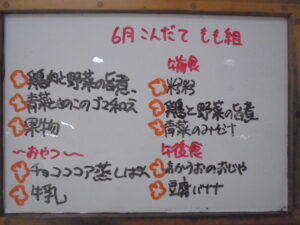 6月こんだて もも組
鶏肉と野菜の旨煮
青菜ときのこのゴマ和え
果物
〜おやつ〜
チョコココア蒸しぱん
牛乳
午前食
鶏と野菜の旨煮
青菜のみそ汁
午後食
青かうおのおじや
豆腐バナナ